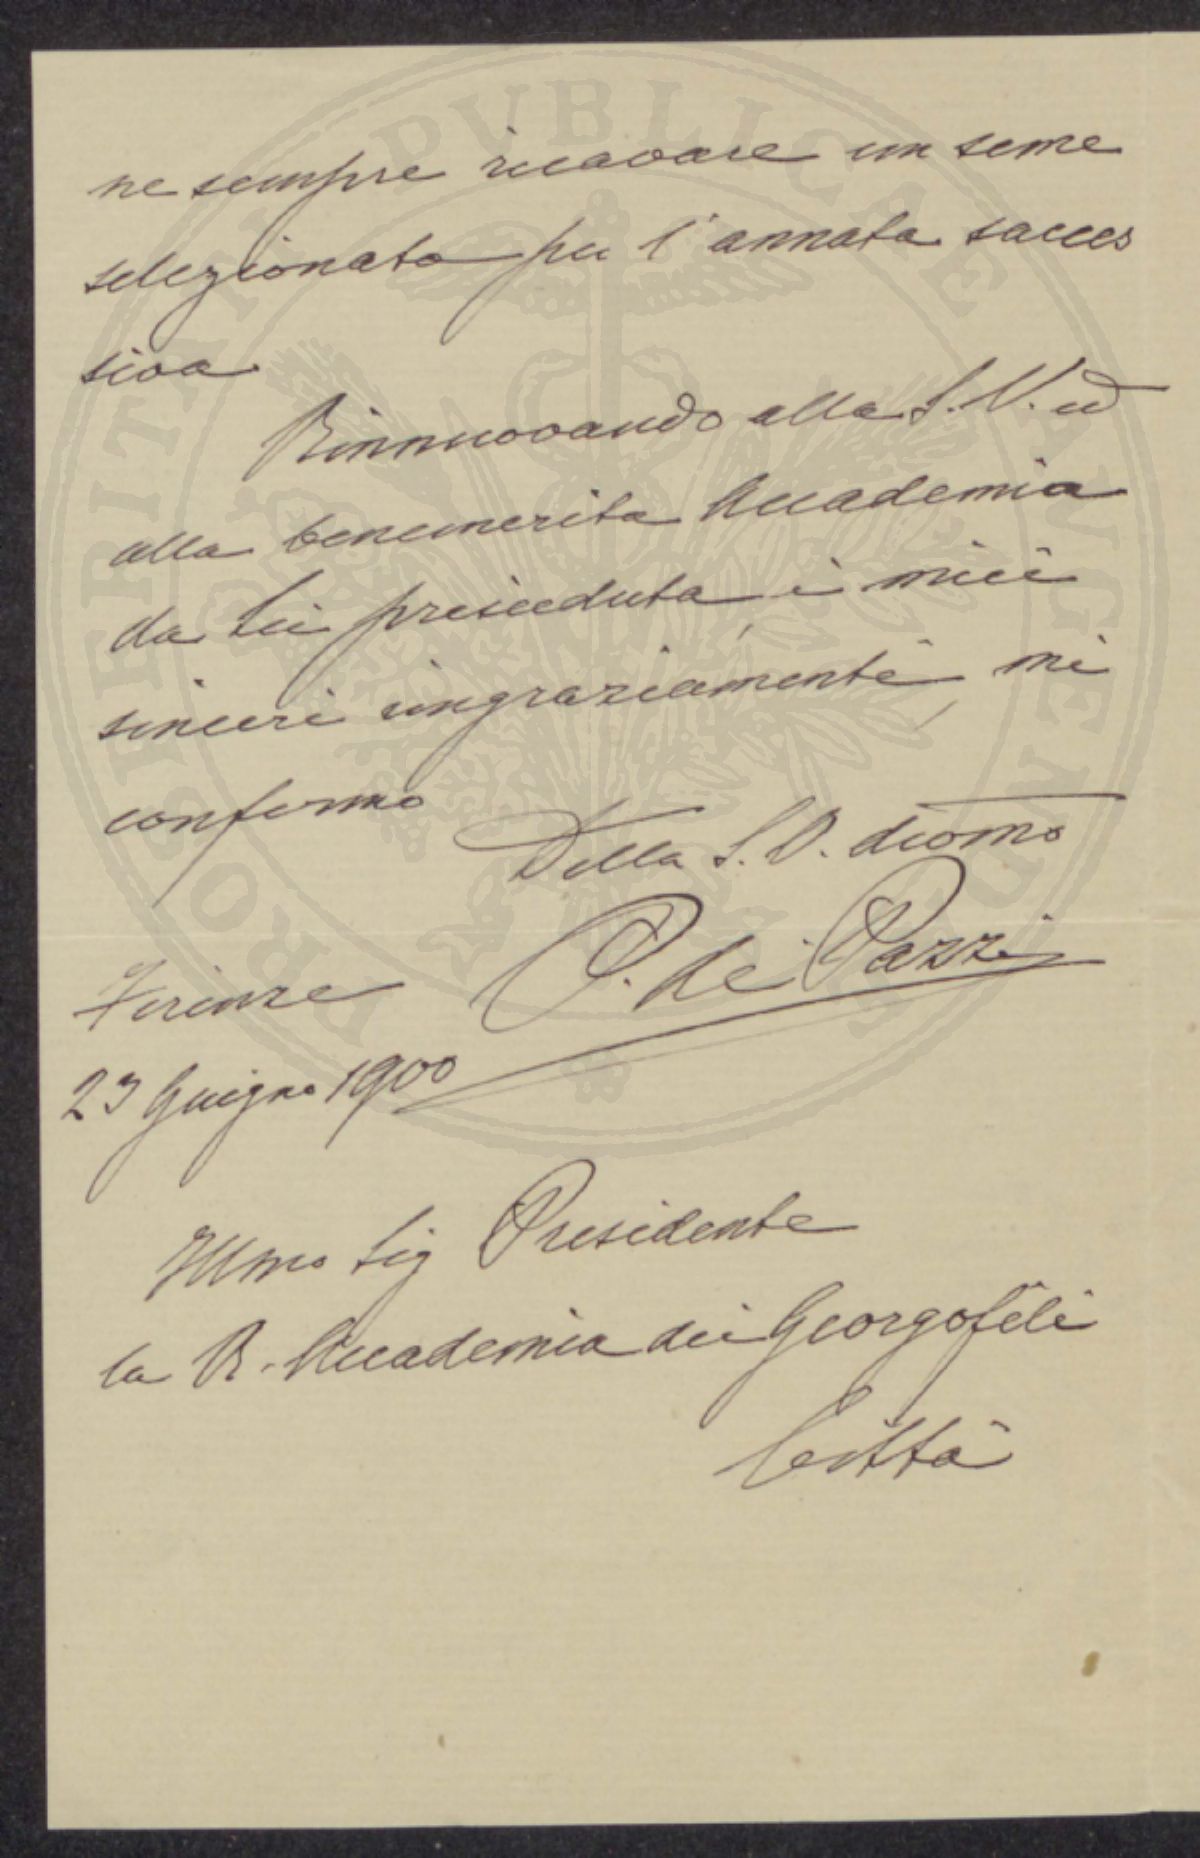 ne sempre ricavare un seme
selezionato per l'annata succes
siva
Rinnuovando alla S. V. ed
alla benemerita Accademia
da Lei presieduta, i miei
sinceri ringraziamenti, mi
confermo
Della S. V. devmo
P. de Pazzi
Firenze
23 Giugno 1900
Illmo Sig Presidente
la R. Accademia dei Georgofili
Città
PROSPERITATI PUBLICAE AUGENDAE